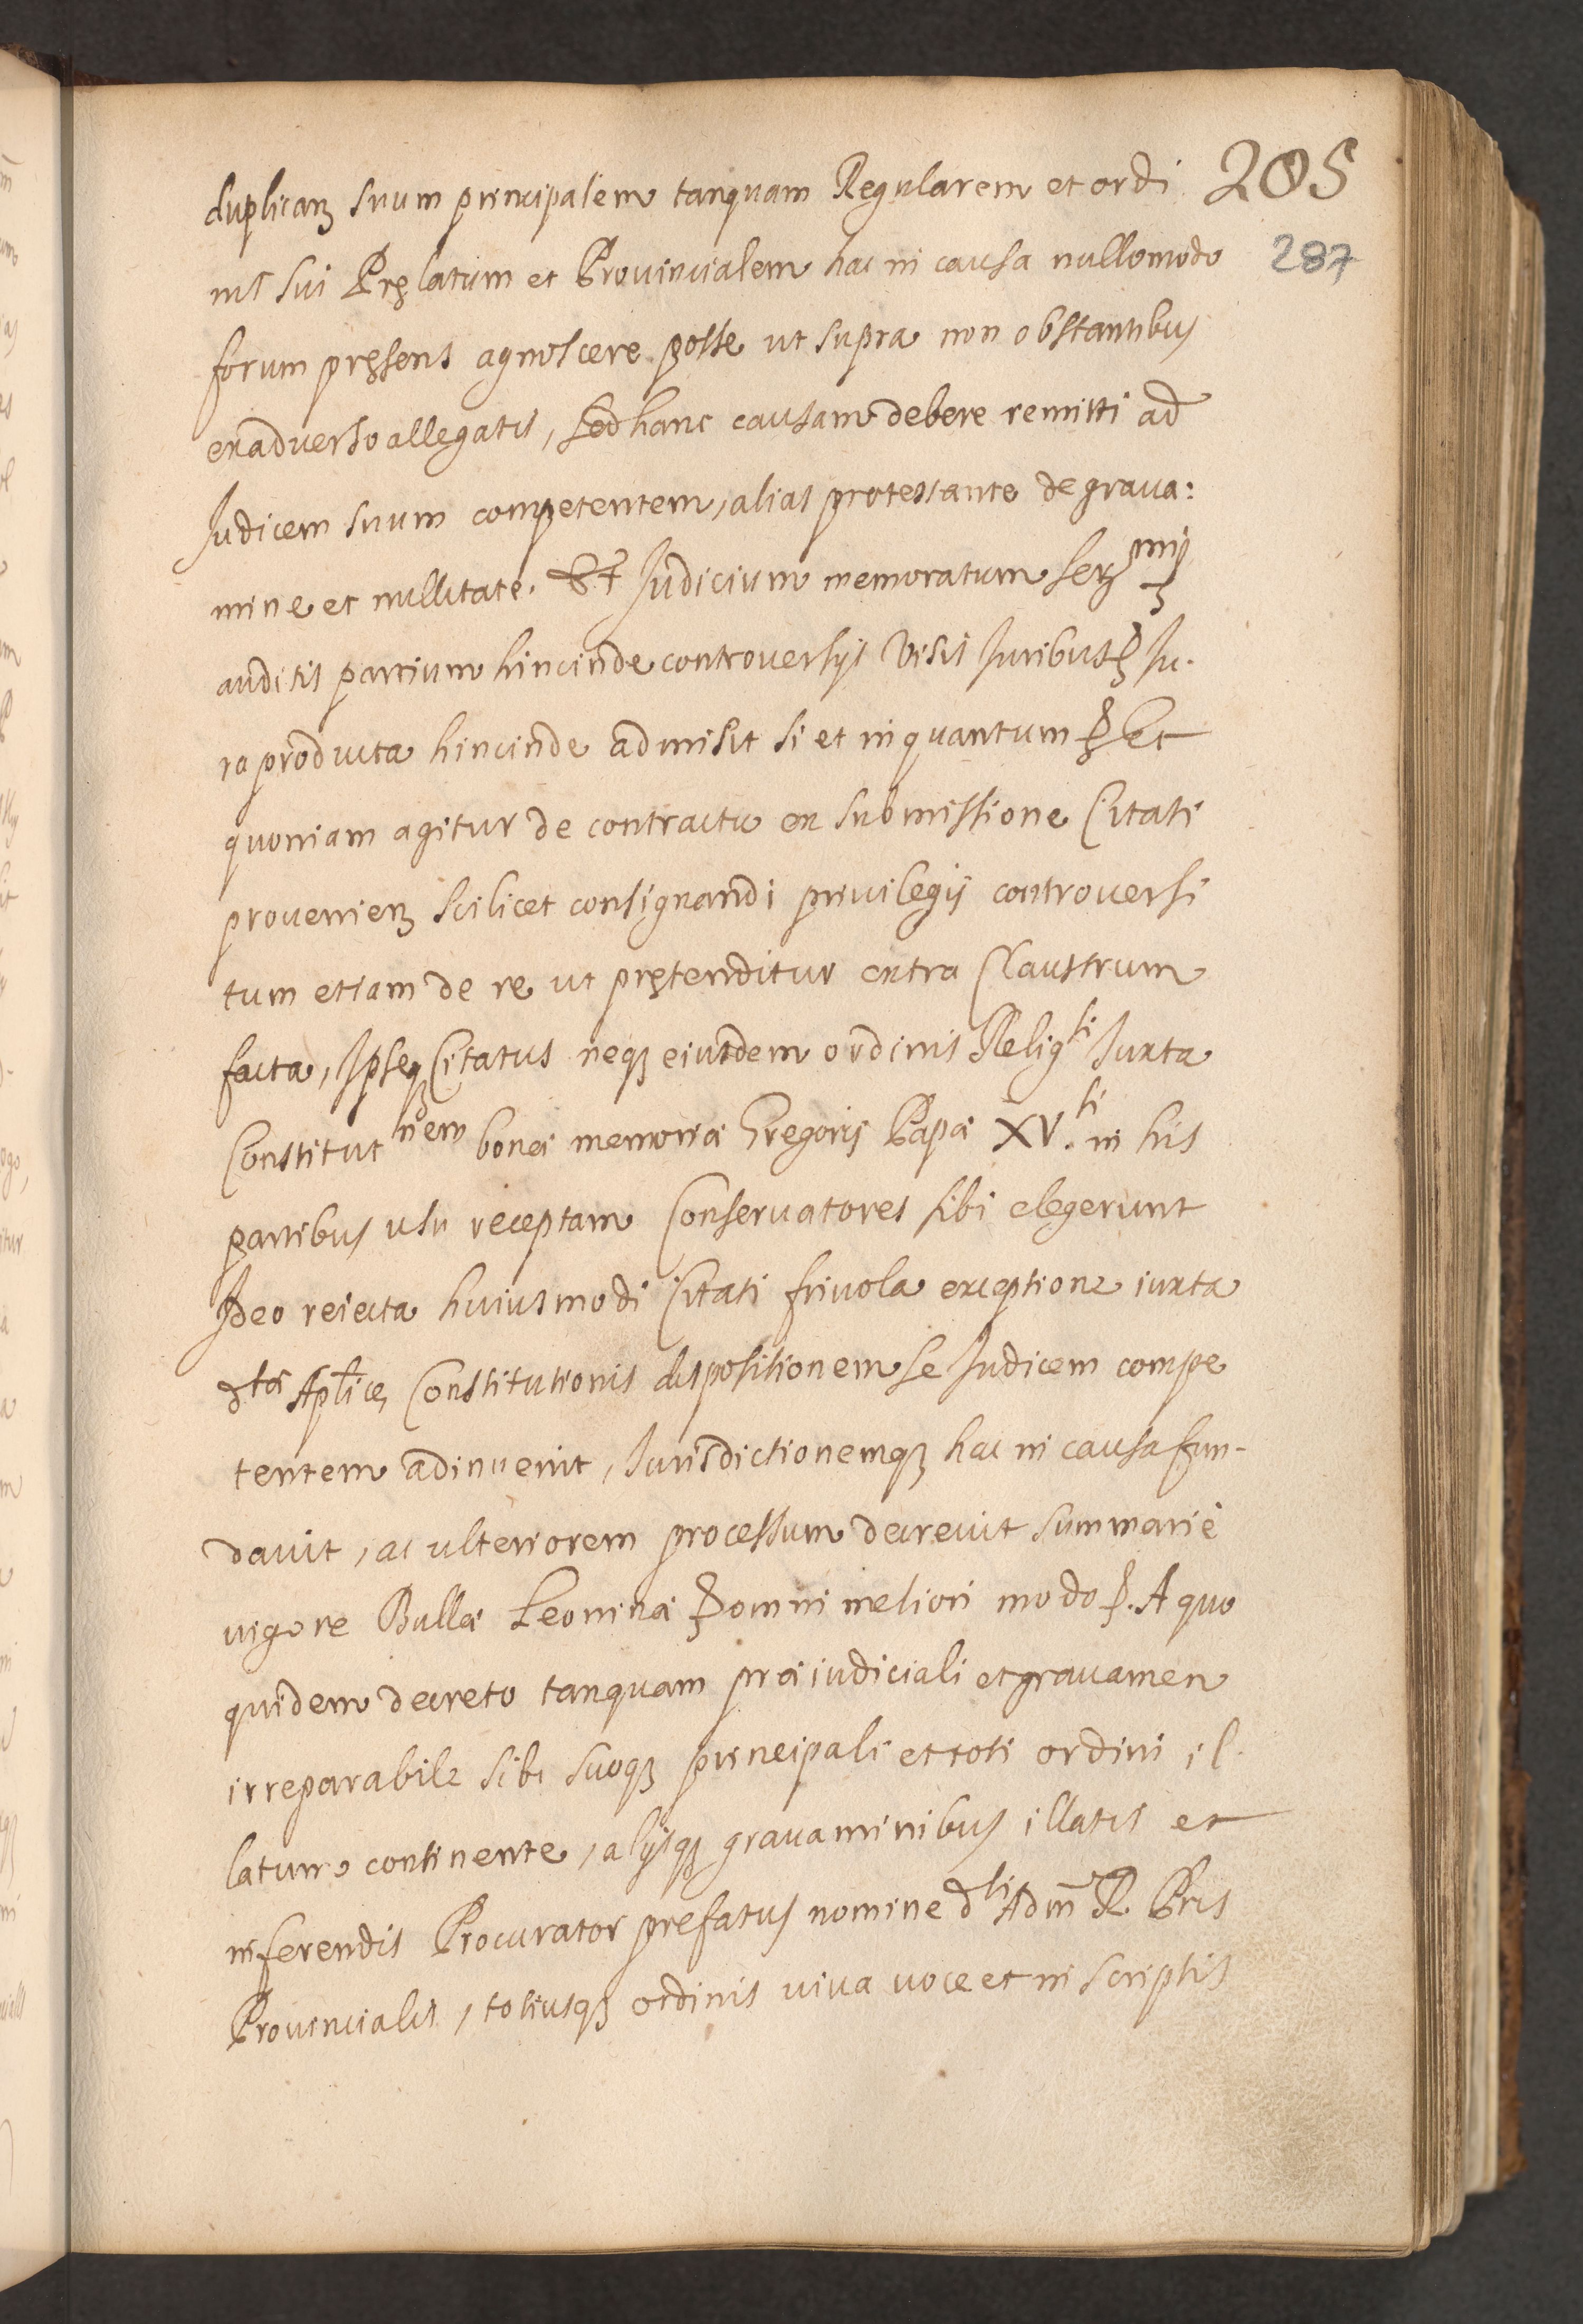 duplican suum principalem tanquam Regularem et ordi 205
nis sui Pręlatum et Provincialem hac in causa nullomodo 287
forum pręsens agnoscere posse ut supra non obstantibus
exadverso allegatis, sed hanc causam debere remitti ad
Judicem suum competentem, alias protestante de grava:
mine et nullitate. Et Judicium memoratum Ser
auditis partium hincinde controversijs visis Juribus Ju.
ra producta hincinde admisit si et inquantum Et
quoniam agitur de contractu ex submissione Citati
provenien scilicet consignandi privilegij controversi
tum etiam de re ut prętenditur extra Claustrum
facta, Ipseq Citatus neqȝ eiusdem ordinis Religsi Juxta
Constitutnem bonæ memoriæ Gregorij Papæ XV.ti in his
partibus usu receptam Conservatores sibi elegerunt
Ideo reiecta huiusmodi Citati frivola exceptione iuxta
dtæ Aplicę Constitutionis dispositionem se Judicem compe
tentem adinvenit, Jurisdictionemqȝ hac in causa fun-
davit, ac ulteriorem processum decrevit summariè
vigore Bullæ Leoninæ omni meliori modo p. A quo
quidem decreto tanquam præiudiciali et gravamen
irreparabile sibi suoqȝ principali et toti ordini il.
latum continente, alijsqȝ gravaminibus illatis et
inferendis Procurator prefatus nomine dti Adm R. Pris
Provincialis, totiusqȝ ordinis viva voce et in scriptis